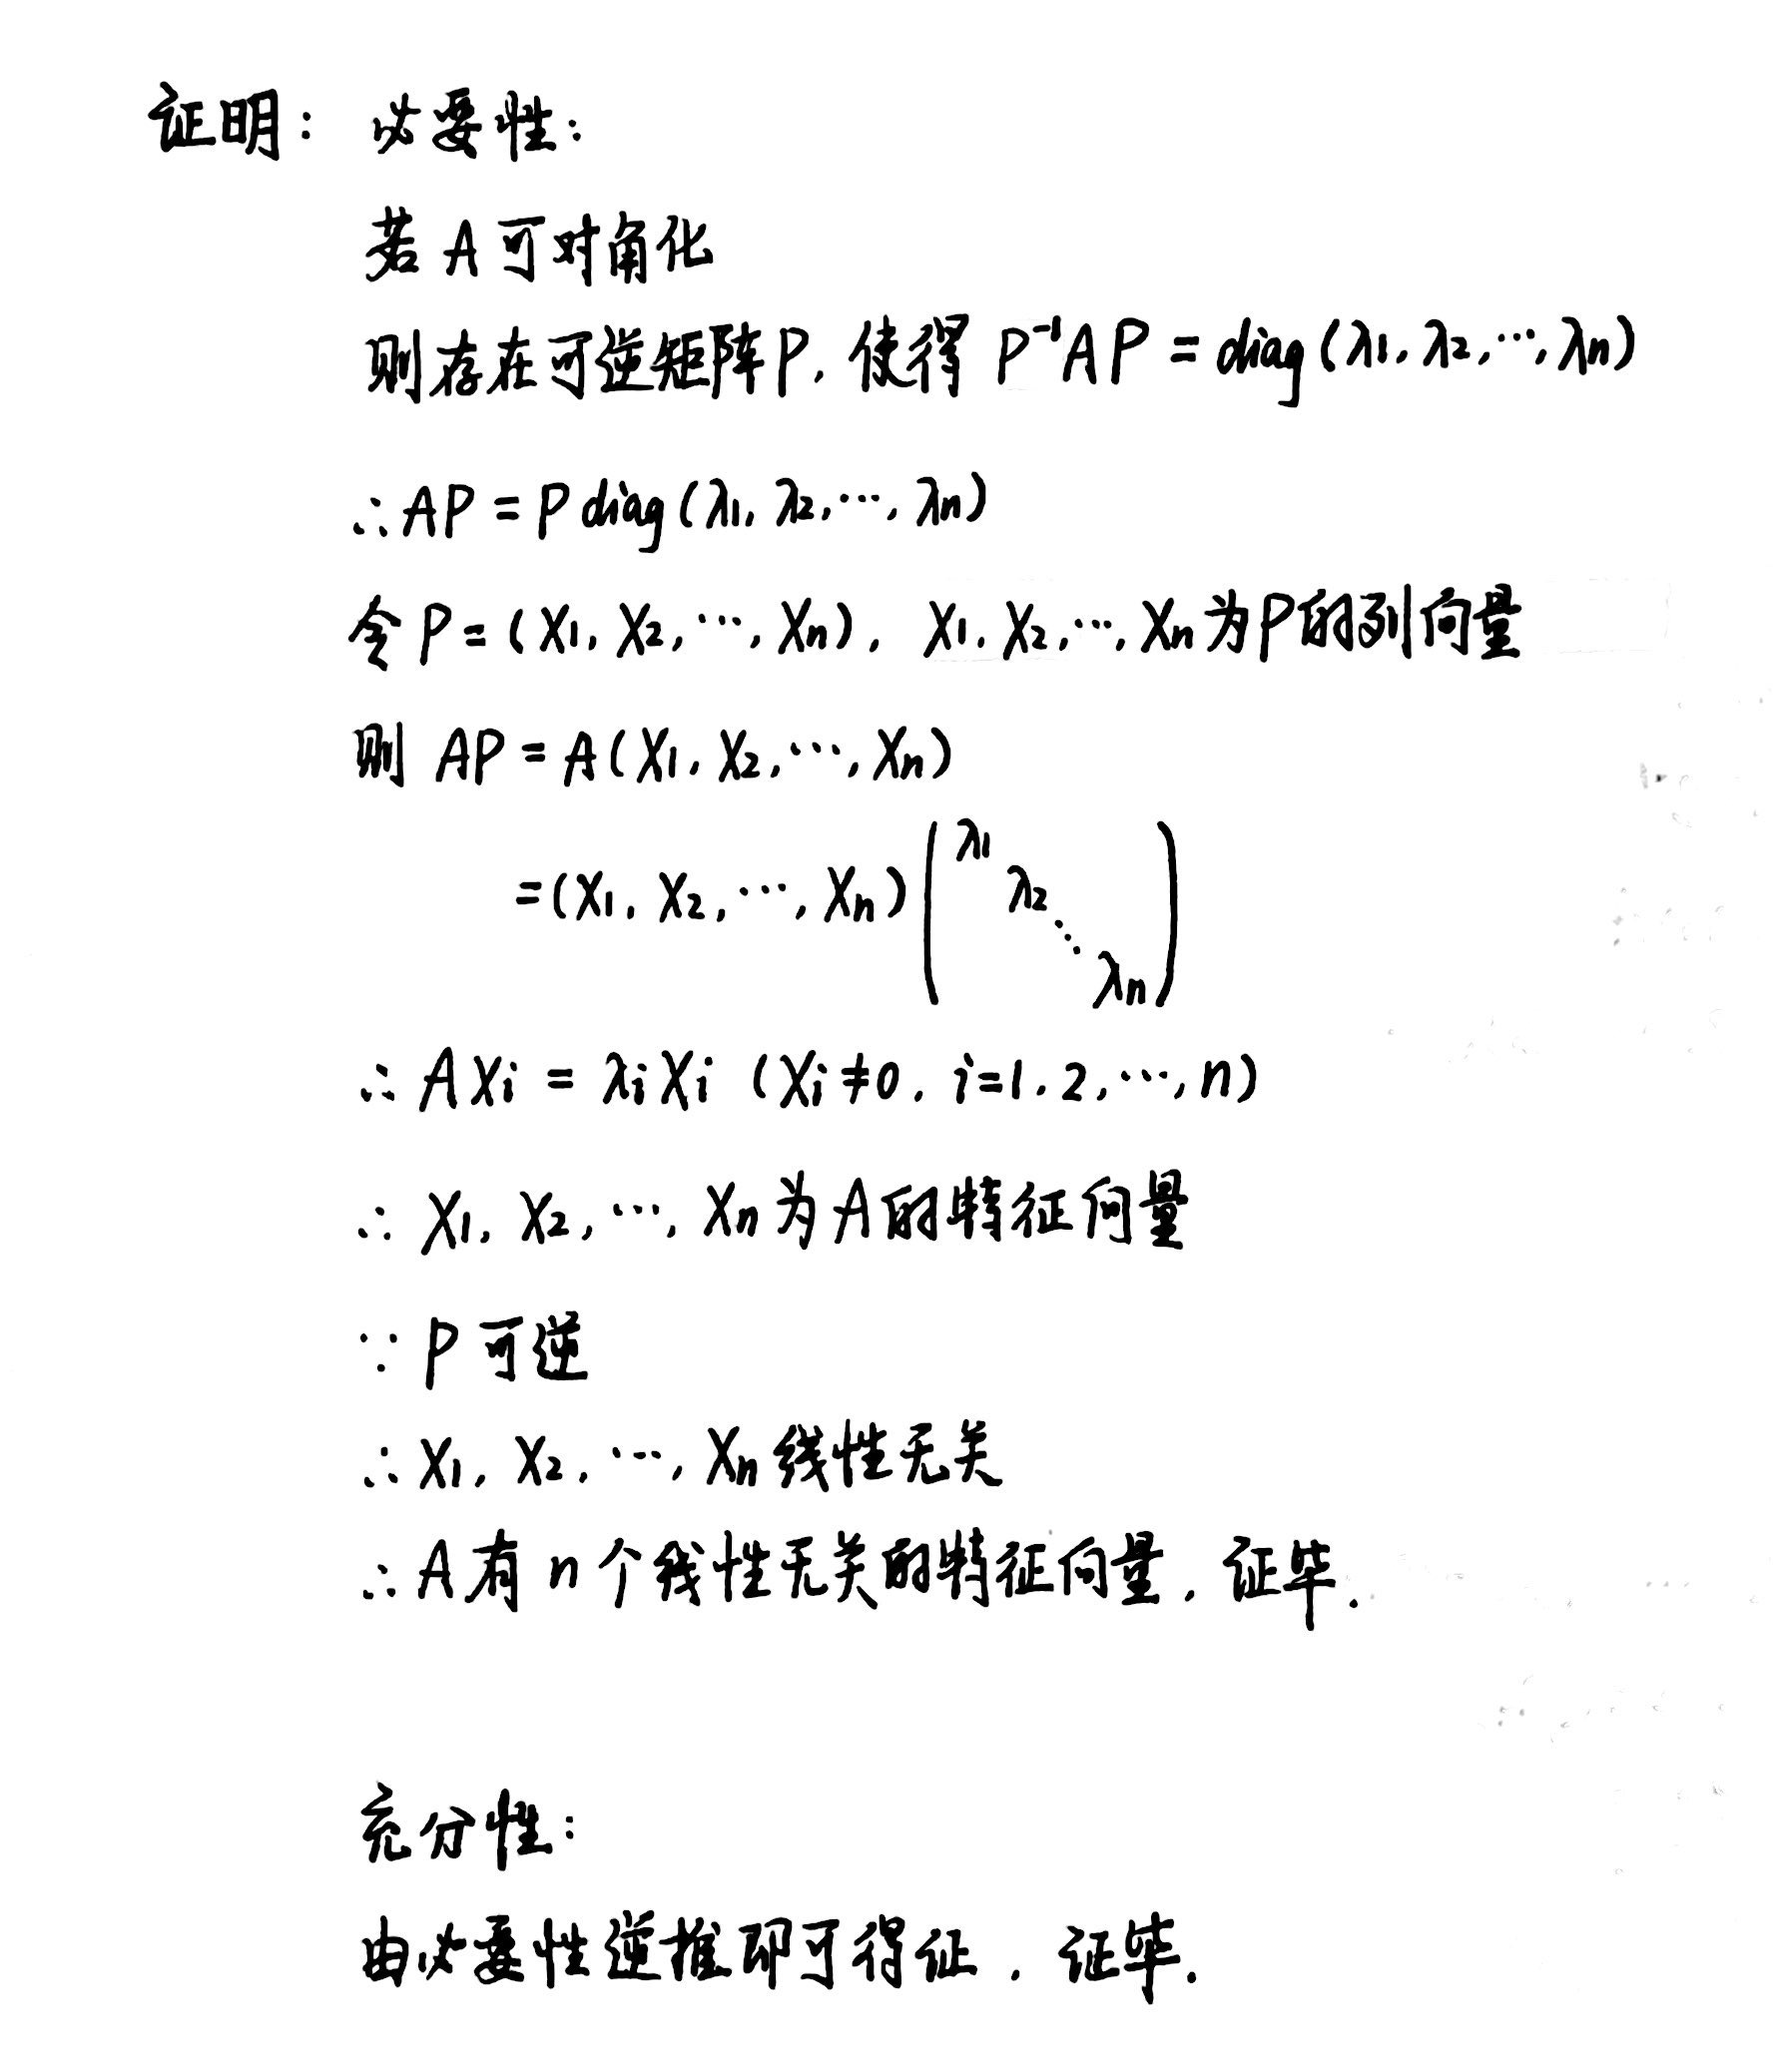 证明: 必要性:
若 A 可对角化
则存在可逆矩阵P, 使得 P⁻¹AP = diag(λ1, λ2, ⋯, λn)
∴ AP = P diag(λ1, λ2, ⋯, λn)
令 P = (X1, X2, ⋯, Xn), X1, X2, ⋯, Xn 为P的列向量
则 AP = A(X1, X2, ⋯, Xn)
= (X1, X2, ⋯, Xn) (λ1 λ2 ⋱ λn)
∴ AXi = λiXi (Xi ≠ 0, i=1, 2, ⋯, n)
∴ X1, X2, ⋯, Xn 为A的特征向量
∵ P 可逆
∴ X1, X2, ⋯, Xn 线性无关
∴ A 有 n 个线性无关的特征向量, 证毕.
充分性:
由必要性逆推即可得证, 证毕.